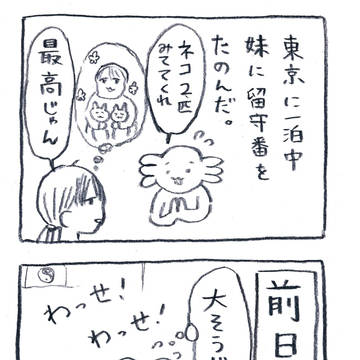 東京に一泊中
妹に留守番を
たのんだ。
ネコ2匹
みててくれ
最高じゃん
前日
大そうじ
わっせ!
わっせ!